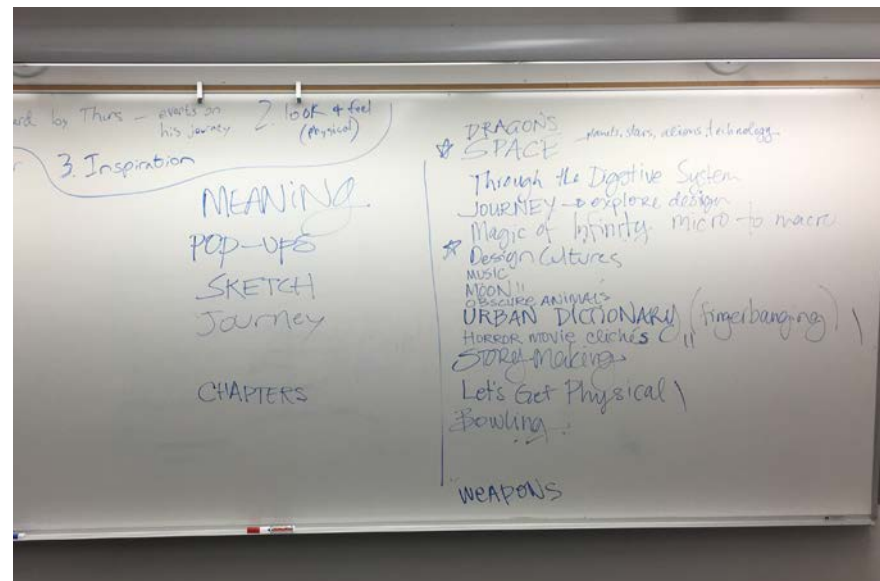 ard by Thurs – events on his journey
2. look & feel (physical)
3. Inspiration
MEANING
POP-UPS
SKETCH
Journey
CHAPTERS
DRAGONS
SPACE planets, stars, aliens, technology
Through the Digestive System
JOURNEY → explore design
Magic of Infinity micro to macro
Design Cultures
MUSIC
MOON!!
OBSCURE ANIMALS
URBAN DICTIONARY (fingerbanging)
HORROR MOVIE clichés
STORY making
Let's Get Physical
Bowling
WEAPONS